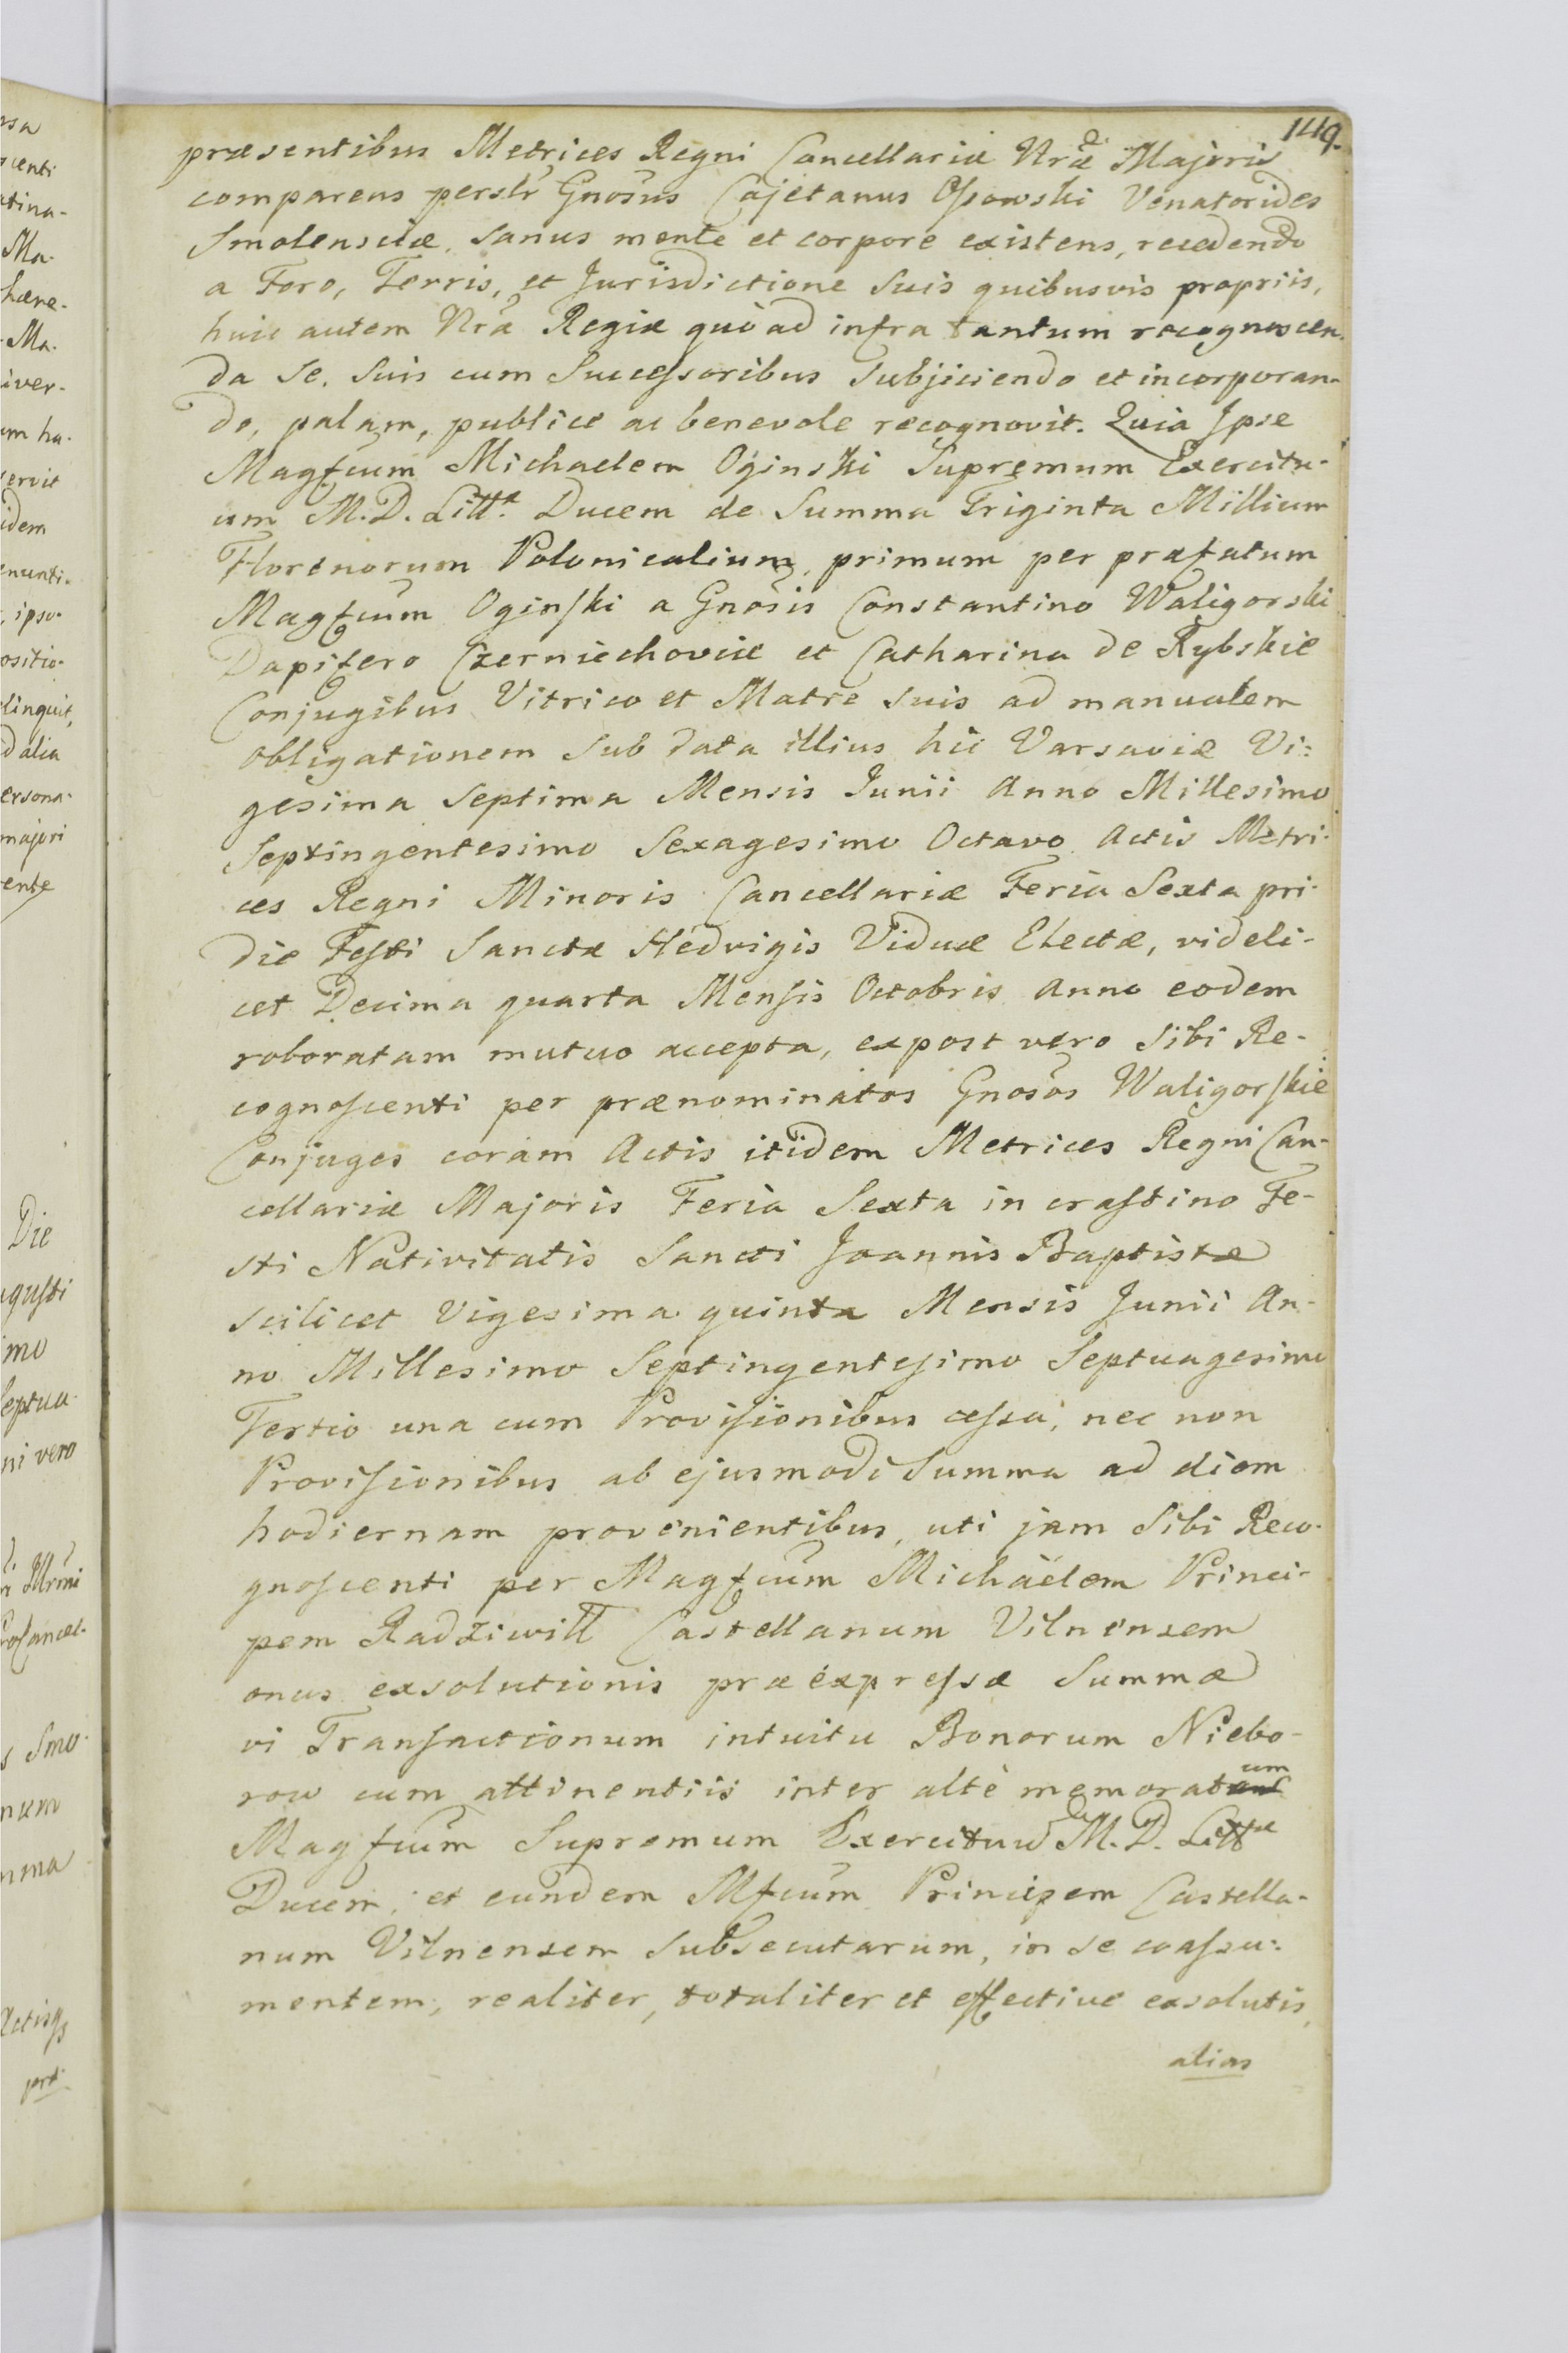 149.
præsentibus Metrices Regni Cancellariæ Nræ Majoris
comparens perslr Gnosus Cajetanus Ossowski Venatorides
Smolensciæ, sanus mente et corpore existens, recedendo
a Foro, Terris, et Jurisdictione Suis quibusvis propriis,
huic autem Nræ Regiæ quò ad infra tantum recognoscen-
da Se, Suis cum Successoribus Subjiciendo et incorporan-
do, palam, publice ac benevole recognovit. Quia Ipse
Magfcum Michaelem Oginski Supremum Exercitu-
um M.D. Littæ Ducem de Summa Triginta Millium
Florenorum Polonicalium, primum per præfatum
Magfcum Oginski a Gnosis Constantino Waligorski
Dapifero Czerniechoviæ et Catharina de Rybskie
Conjugibus Vitrico et Matre suis ad manualem
obligationem sub data illius hic Varsaviæ Vi=
gesima Septima Mensis Junii Anno Millesimo
Septingentesimo Sexagesimo Octavo Actis Metri-
ces Regni Minoris Cancellariæ Feria Sexta pri-
die Festi Sanctæ Hedvigis Viduæ Electæ, videli-
cet Decima quarta Mensis Octobris Anno eodem
roboratam mutuo accepta, expost vero Sibi Re-
cognoscenti per prænominatos Gnosos Waligorskie
Conjuges coram Actis itidem Metrices Regni Can-
cellariæ Majoris Feria Sexta in crastino Fe-
sti Nativitatis Sancti Joannis Baptistæ
scilicet Vigesima quinta Mensis Junii An-
no Millesimo Septingentesimo Septuagesimo
Tertio una cum Provisionibus cessa, nec non
Provisionibus ab ejusmodi Summa ad diem
hodiernam provenientibus, uti jam Sibi Reco-
gnoscenti per Magfcum Michäelem Princi-
pem Radziwiłł Castellanum Vilnensem
onus exsolutionis præexpressæ Summæ
vi Transactionum intuitu Bonorum Niebo-
row cum attinentiis inter altè memoratum
Magfcum Supremum Exercituum M.D. Littæ
Ducem, et eundem Mfcum Principem Castella-
num Vilnensem subsecutarum, in se coassu-
mentem, realiter, totaliter et effective exsolutis,
alias